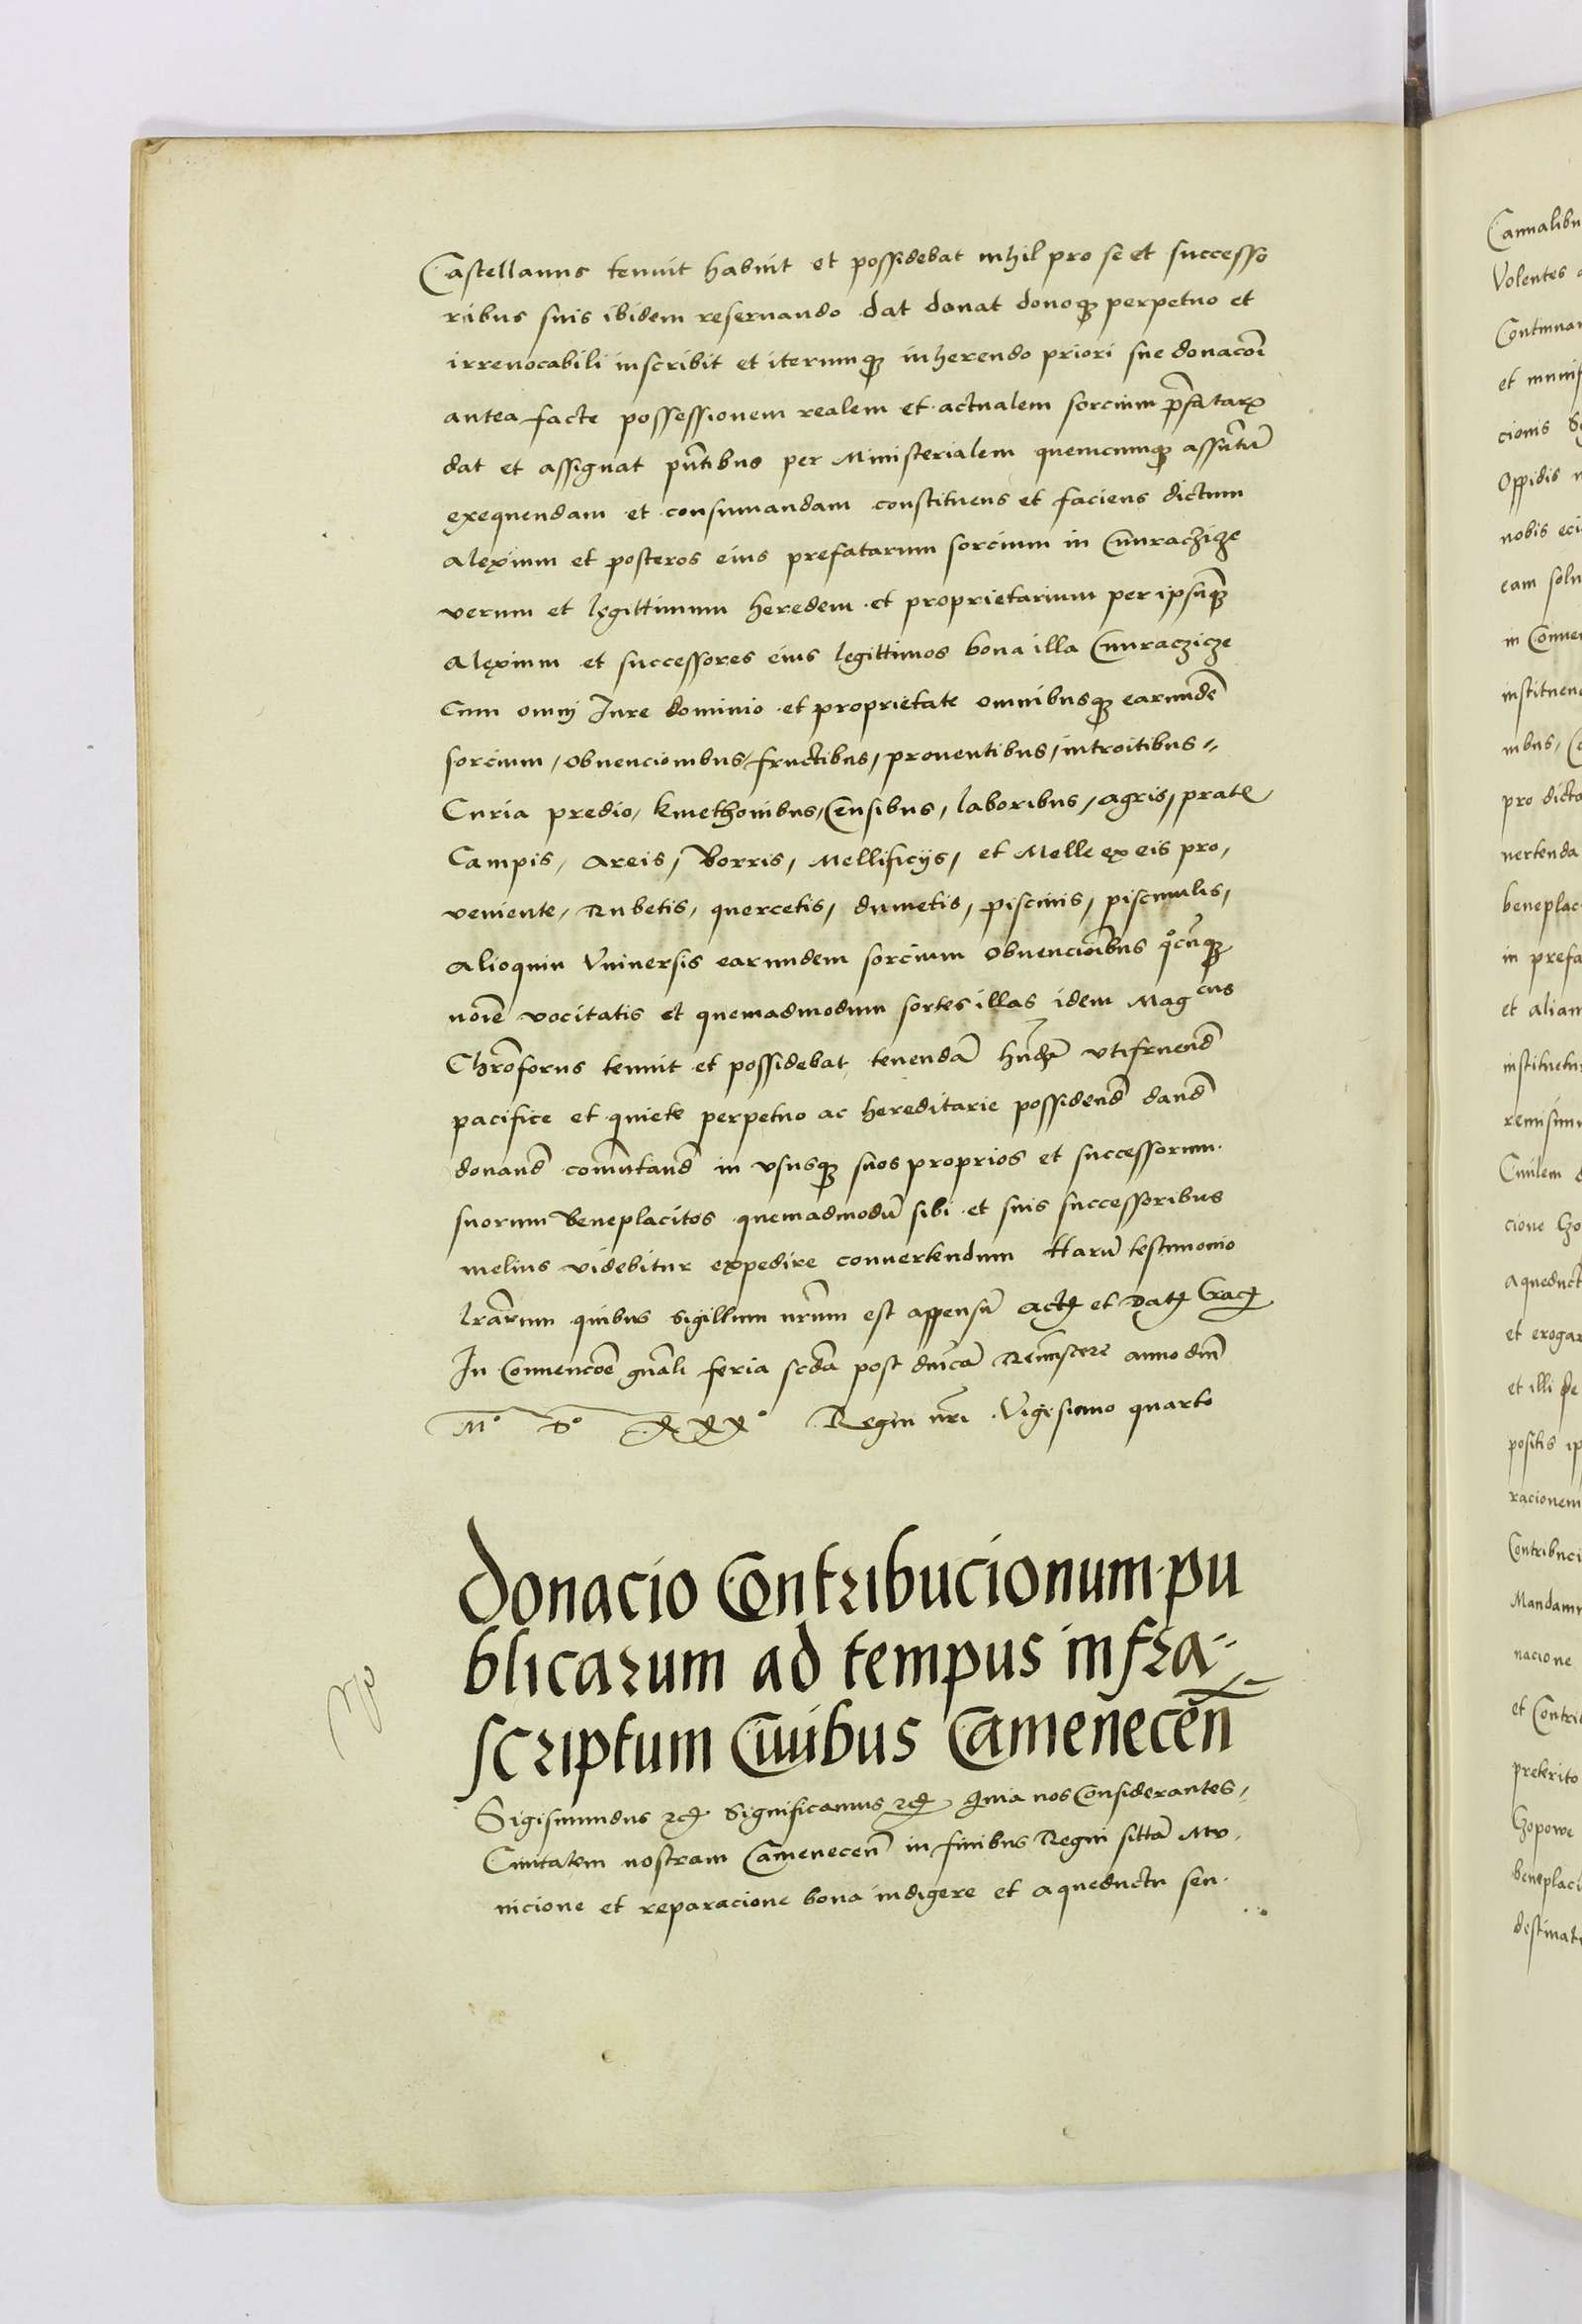 Castellanus tenuit habuit et possidebat nihil pro se et successo
ribus suis ibidem reseruando dat donat donoqꝫ perpetuo et
irreuocabili inscribit et iterumqꝫ inherendo priori sue donacōi
antea facte possessionem realem et actualem sorcium p̄fataꝝ
dat et assignat pn̄tibus per Ministerialem quemcumqꝫ assūptū
exequendam et consumandam constituens et faciens dictum
Alexium et posteros eius prefatarum sorcium in Cunraczicze
verum et legittimum heredem et proprietarium per ipsūqꝫ
Alexium et successores eius legittimos bona illa Cunraczicze
Cum omnj Jure dominio et proprietate omnibusqꝫ earundē
sorcium, obuencionibus, fructibus, prouentibus, introitibus,,
Curia predio, kmethonibus, Censibus, laboribus, agris, pratꝭ
Campis, areis, borris, Mellificijs, et Melle ex eis pro,
veniente, Rubetis, quercetis, dumetis, piscinis, piscinulis,
Alioquin Vniuersis earundem sorcium obuencioībus qͦcūqꝫ
noīe vocitatis et quemadmodum sortes illas idem Magcus
Chrōforus tenuit et possidebat tenendā hn̄dā vtifruend̄
pacifice et quiete perpetuo ac hereditarie possidend̄ dand̄
donand̄ comutand̄ in vsusqꝫ suos proprios et successorum
suorum beneplacitos quemadmodū sibi et suis successoribus
melius videbitur expedire conuertendum Harū testimonio
lrārum quibus sigillum nrūm est appensū Actꝭ et Datꝭ Cracꝭ
In Conuencōe gnāli feria scdā post dnīcā Remīscere anno dnī
Mº Dº XXXº Regni nrī Vigesimo quarto
donacio Contribucionum pu
blicarum ad tempus infra-
scriptum Ciuibus Camenecen̄
Sigismundus ꝛcꝭ Significamus ꝛcꝭ Quia nos Considerantes,
Ciuitatem nostram Camenecen̄ in finibus Regni sittā Mu,
nicione et reparacione bona indigere et aqueductu seu
Canalibu
Volentes
Continuan
et munif
cionis
Oppidis
nobis eci
eam solu
in Conue
instituen
pro dicto
uertenda
beneplac
in prefa
et aliam
instituetu
remisimu
Ciuilem
cione
Aqueduct
et erogar
et illi
positis ip
racionem
Contribuci
Mandam
nacione
et Contri
preterito
Czopowe
beneplaci
destinat